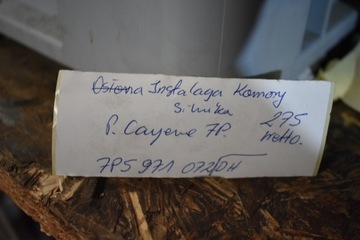 Osłona Instalacja Komory
Silnika
P. Cayene 7P.
275
netto.
7P5 971 072 DH